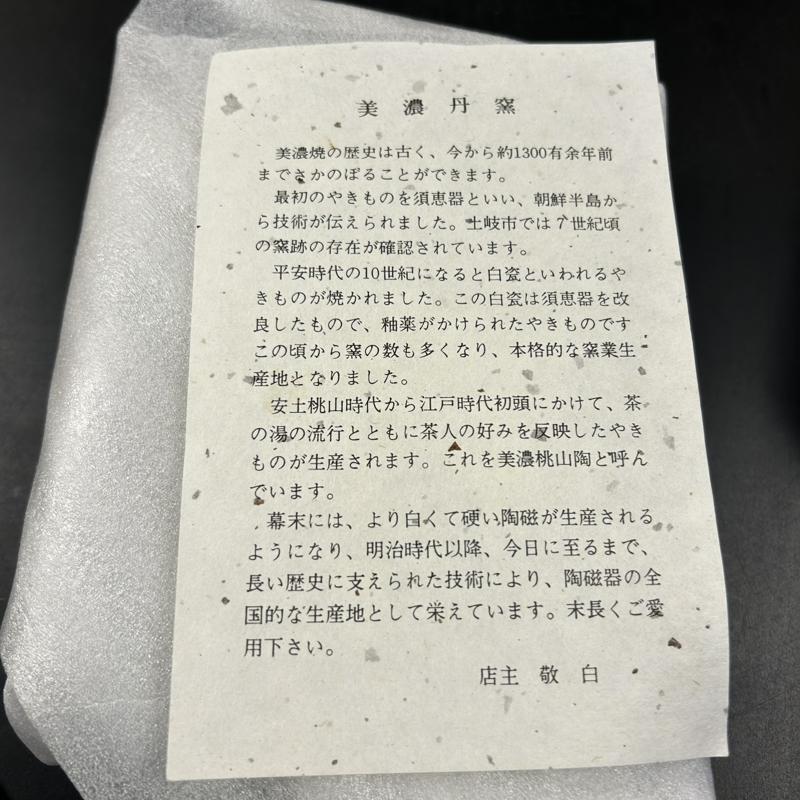 美濃丹窯
美濃焼の歴史は古く、今から約1300有余年前
までさかのぼることができます。
最初のやきものを須恵器といい、朝鮮半島か
ら技術が伝えられました。土岐市では7世紀頃
の窯跡の存在が確認されています。
平安時代の10世紀になると白瓷といわれるや
きものが焼かれました。この白瓷は須恵器を改
良したもので、釉薬がかけられたやきものです
この頃から窯の数も多くなり、本格的な窯業生
産地となりました。
安土桃山時代から江戸時代初頭にかけて、茶
の湯の流行とともに茶人の好みを反映したやき
ものが生産されます。これを美濃桃山陶と呼ん
でいます。
幕末には、より白くて硬い陶磁が生産される
ようになり、明治時代以降、今日に至るまで、
長い歴史に支えられた技術により、陶磁器の全
国的な生産地として栄えています。末長くご愛
用下さい。
店主 敬 白